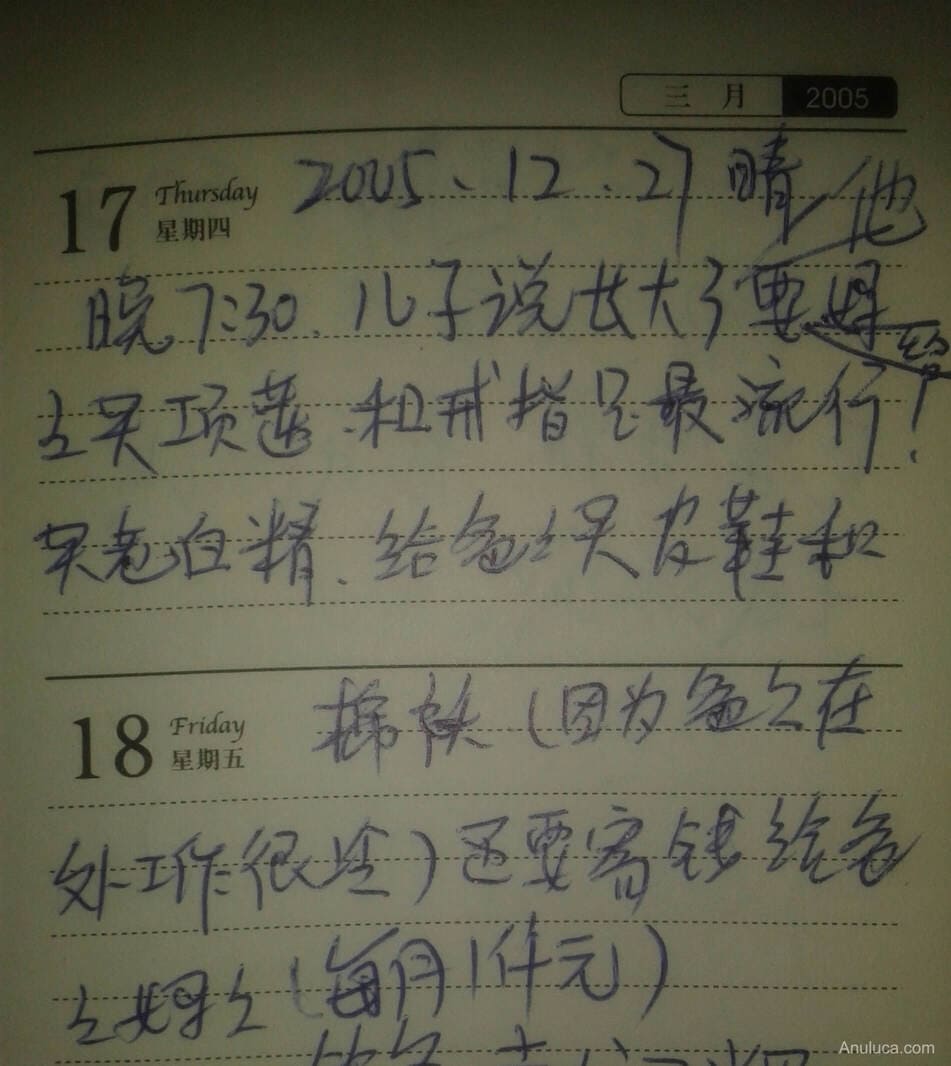 三月 2005
17 Thursday 星期四 2005、12、27 晴 他
晚7:30、儿子说长大了要给妈
々买项链和戒指是最流行!
买老白精、给爸々买皮鞋和
18 Friday 星期五 棉袄(因为爸々在
外工作很冷)还要寄钱给爸
々妈々(每月1仟元)
Anuluca.com